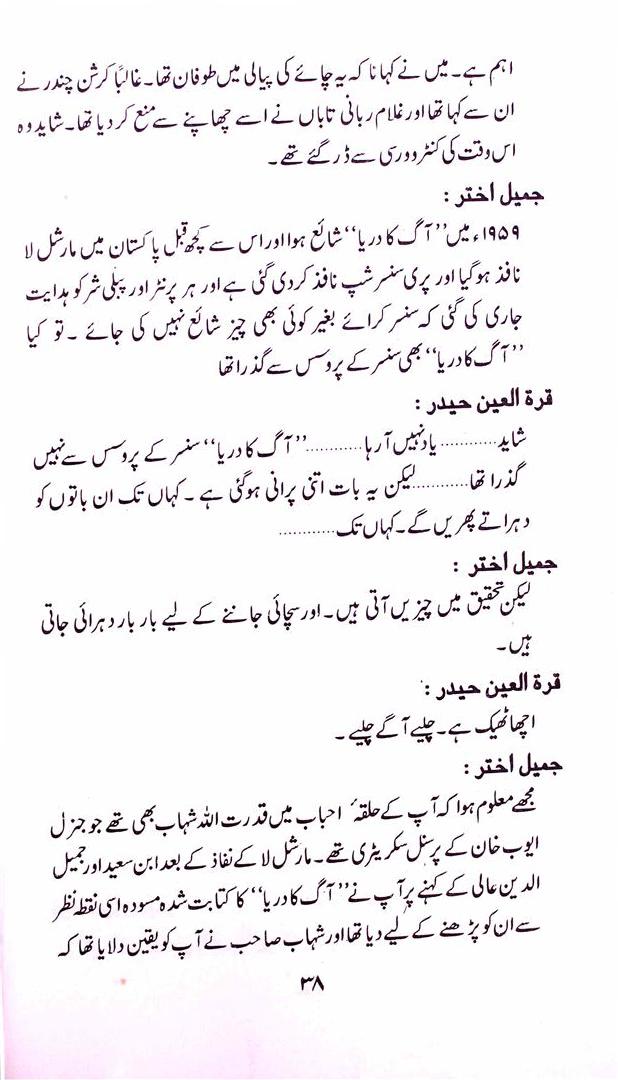 اہم ہے۔ میں نے کہا نا کہ یہ چائے کی پیالی میں طوفان تھا۔ غالباً کرشن چندر نے
ان سے کہا تھا اور غلام ربانی تاباں نے اسے چھاپنے سے منع کر دیا تھا۔ شاید وہ
اس وقت کی کنٹروورسی سے ڈر گئے تھے۔
جمیل اختر :
۱۹۵۹ء میں ’’آگ کا دریا‘‘ شائع ہوا اور اس سے کچھ قبل پاکستان میں مارشل لا
نافذ ہو گیا اور پری سنسر شپ نافذ کر دی گئی ہے اور ہر پرنٹر اور پبلی شر کو ہدایت
جاری کی گئی کہ سنسر کرائے بغیر کوئی بھی چیز شائع نہیں کی جائے ۔ تو کیا
’’آگ کا دریا‘‘ بھی سنسر کے پروسس سے گذرا تھا
قرۃ العین حیدر :
شاید............ یاد نہیں آ رہا............’’آگ کا دریا‘‘ سنسر کے پروسس سے نہیں
گذرا تھا............لیکن یہ بات اتنی پرانی ہو گئی ہے ۔ کہاں تک ان باتوں کو
دہراتے پھریں گے۔ کہاں تک............
جمیل اختر :
لیکن تحقیق میں چیزیں آتی ہیں۔ اور سچائی جاننے کے لیے بار بار دہرائی جاتی
ہیں۔
قرۃ العین حیدر :
اچھا ٹھیک ہے۔ چلیے آگے چلیے۔
جمیل اختر :
مجھے معلوم ہوا کہ آپ کے حلقۂ احباب میں قدرت اللہ شہاب بھی تھے جو جنرل
ایوب خان کے پرسنل سکریٹری تھے۔ مارشل لا کے نفاذ کے بعد ابن سعید اور جمیل
الدین عالی کے کہنے پر آپ نے ’’آگ کا دریا‘‘ کا کتابت شدہ مسودہ اسی نقطہ نظر
سے ان کو پڑھنے کے لیے دیا تھا اور شہاب صاحب نے آپ کو یقین دلایا تھا کہ
۳۸